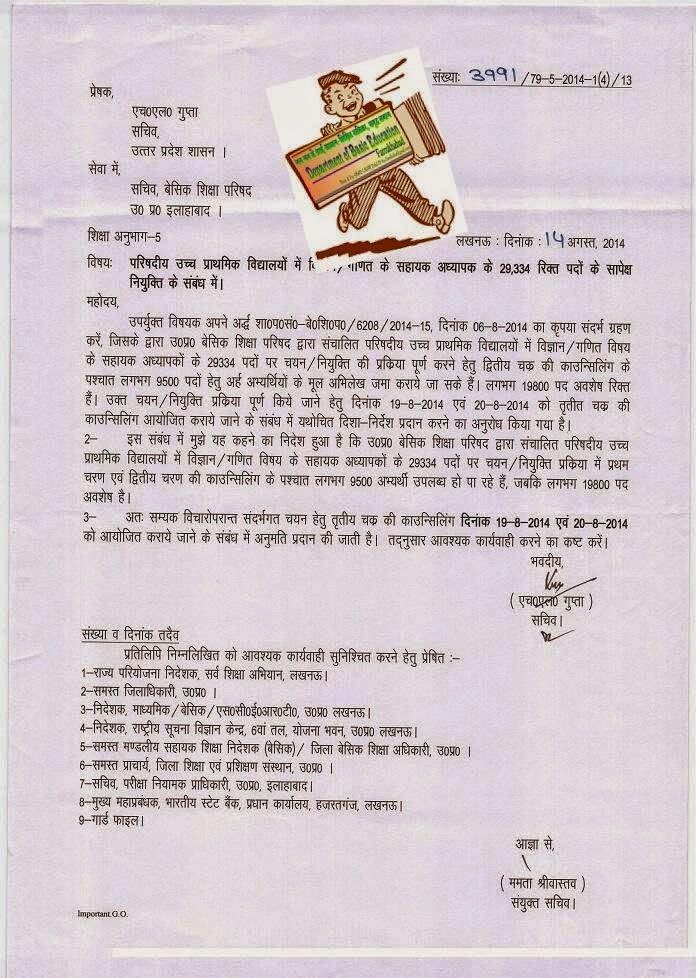 संख्याः 3991/79-5-2014-1(4)/13
प्रेषक,
एच0एल0 गुप्ता
सचिव,
उत्तर प्रदेश शासन ।
सेवा में,
सचिव, बेसिक शिक्षा परिषद
उ0 प्र0 इलाहाबाद ।
Department of Basic Education
Farrukhabad
शिक्षा अनुभाग-5
लखनऊ : दिनांक : 14 अगस्त, 2014
विषयः परिषदीय उच्च प्राथमिक विद्यालयों में /गणित के सहायक अध्यापक के 29,334 रिक्त पदों के सापेक्ष
नियुक्ति के संबंध में।
महोदय,
उपर्युक्त विषयक अपने अर्द्ध शा0प0सं0-बे0शि0प0/6208/2014-15, दिनांक 06-8-2014 का कृपया संदर्भ ग्रहण
करें, जिसके द्वारा उ0प्र0 बेसिक शिक्षा परिषद द्वारा संचालित परिषदीय उच्च प्राथमिक विद्यालयों में विज्ञान/गणित विषय
के सहायक अध्यापकों के 29334 पदों पर चयन/नियुक्ति की प्रक्रिया पूर्ण करने हेतु द्वितीय चक्र की काउन्सिलिंग के
पश्चात लगभग 9500 पदों हेतु अर्ह अभ्यर्थियों के मूल अभिलेख जमा कराये जा सके हैं। लगभग 19800 पद अवशेष रिक्त
हैं। उक्त चयन/नियुक्ति प्रक्रिया पूर्ण किये जाने हेतु दिनांक 19-8-2014 एवं 20-8-2014 को तृतीत चक्र की
काउन्सिलिंग आयोजित कराये जाने के संबंध में यथोचित दिशा-निर्देश प्रदान करने का अनुरोध किया गया है।
2- इस संबंध में मुझे यह कहने का निदेश हुआ है कि उ0प्र0 बेसिक शिक्षा परिषद द्वारा संचालित परिषदीय उच्च
प्राथमिक विद्यालयों में विज्ञान/गणित विषय के सहायक अध्यापकों के 29334 पदों पर चयन/नियुक्ति प्रक्रिया में प्रथम
चरण एवं द्वितीय चरण की काउन्सिलिंग के पश्चात लगभग 9500 अभ्यर्थी उपलब्ध हो पा रहे हैं, जबकि लगभग 19800 पद
अवशेष है।
3- अतः सम्यक विचारोपरान्त संदर्भगत चयन हेतु तृतीय चक्र की काउन्सिलिंग दिनांक 19-8-2014 एवं 20-8-2014
को आयोजित कराये जाने के संबंध में अनुमति प्रदान की जाती है। तद्नुसार आवश्यक कार्यवाही करने का कष्ट करें।
भवदीय,
( एच0एल0 गुप्ता )
सचिव।
संख्या व दिनांक तदैव
प्रतिलिपि निम्नलिखित को आवश्यक कार्यवाही सुनिश्चित करने हेतु प्रेषित :-
1-राज्य परियोजना निदेशक, सर्व शिक्षा अभियान, लखनऊ।
2-समस्त जिलाधिकारी, उ0प्र0 ।
3-निदेशक, माध्यमिक/बेसिक/एस0सी0ई0आर0टी0, उ0प्र0 लखनऊ।
4-निदेशक, राष्ट्रीय सूचना विज्ञान केन्द्र, 6वां तल, योजना भवन, उ0प्र0 लखनऊ।
5-समस्त मण्डलीय सहायक शिक्षा निदेशक (बेसिक)/ जिला बेसिक शिक्षा अधिकारी, उ0प्र0 ।
6-समस्त प्राचार्य, जिला शिक्षा एवं प्रशिक्षण संस्थान, उ0प्र0 ।
7-सचिव, परीक्षा नियामक प्राधिकारी, उ0प्र0, इलाहाबाद।
8-मुख्य महाप्रबंधक, भारतीय स्टेट बैंक, प्रधान कार्यालय, हजरतगंज, लखनऊ।
9-गार्ड फाइल।
आज्ञा से,
( ममता श्रीवास्तव )
संयुक्त सचिव।
Important.G.O.